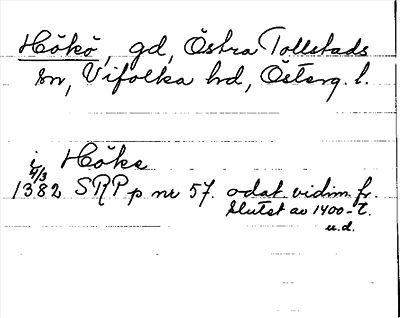 Hökö, gd, Östra Tollstads
sn, Vifolka hd, Österg. l.
i Höke
4/3
1382 SRP p nr 57. odat. vidim. fr.
slutet av 1400-t.
u.d.